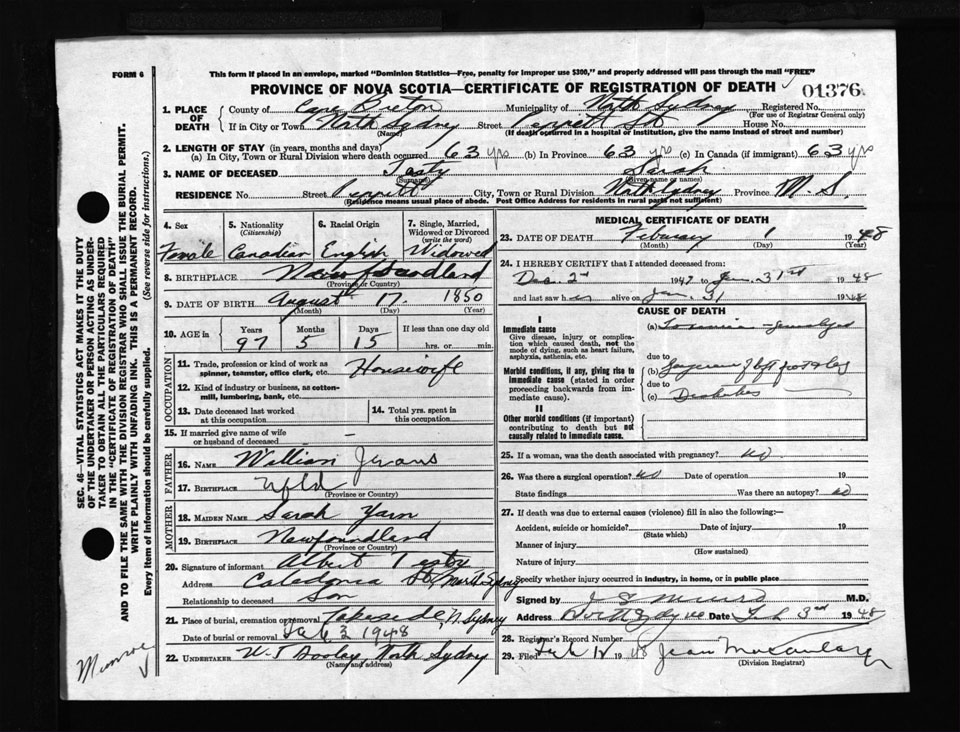 FORM 6
This form if placed in an envelope, marked "Dominion Statistics—Free, penalty for improper use $300," and properly addressed will pass through the mail "FREE"
PROVINCE OF NOVA SCOTIA—CERTIFICATE OF REGISTRATION OF DEATH
01376
1. PLACE OF DEATH
County of Cape Breton Municipality of North Sydney Registered No.
(For use of Registrar General only)
If in City or Town North Sydney Street Perrett St House No.
(Name) (If death occurred in a hospital or institution, give the name instead of street and number)
2. LENGTH OF STAY (in years, months and days)
(a) In City, Town or Rural Division where death occurred 63 yrs (b) In Province 63 yrs (c) In Canada (if immigrant) 63 yrs
3. NAME OF DECEASED Sarah
(Surname) (Given name or names)
RESIDENCE No. Street City, Town or Rural Division North Sydney Province N. S.
(Residence means usual place of abode. Post Office Address for residents in rural parts not sufficient)
4. Sex
Female
5. Nationality
(Citizenship)
Canadian
6. Racial Origin
English
7. Single, Married, Widowed or Divorced
(write the word)
Widowed
8. BIRTHPLACE Newfoundland
(Province or Country)
9. DATE OF BIRTH August 17 1850
(Month) (Day) (Year)
10. AGE in
Years Months Days If less than one day old
97 5 15 hrs. or min.
OCCUPATION
11. Trade, profession or kind of work as spinner, teamster, office clerk, etc. Housewife
12. Kind of industry or business, as cotton-mill, lumbering, bank, etc.
13. Date deceased last worked at this occupation
14. Total yrs. spent in this occupation
15. If married give name of wife or husband of deceased —
FATHER
16. NAME William
17. BIRTHPLACE Nfld
(Province or Country)
MOTHER
18. MAIDEN NAME Sarah Yarn
19. BIRTHPLACE Newfoundland
(Province or Country)
20. Signature of informant Albert
Address Caledonia St, North Sydney
Relationship to deceased Son
21. Place of burial, cremation or removal Lakeside, N. Sydney
Date of burial or removal Feb 3 1948
22. UNDERTAKER W. J. Dooley North Sydney
(Name and address)
MEDICAL CERTIFICATE OF DEATH
23. DATE OF DEATH February 1 1948
(Month) (Day) (Year)
24. I HEREBY CERTIFY that I attended deceased from:
Dec. 2nd 1947 to Jan. 31st 1948
and last saw her alive on Jan. 31 1948
CAUSE OF DEATH
I
Immediate cause
Give disease, injury or complication which caused death, not the mode of dying, such as heart failure, asphyxia, asthenia, etc.
(a)
due to
Morbid conditions, if any, giving rise to immediate cause (stated in order proceeding backwards from immediate cause).
(b)
due to
(c) Diabetes
II
Other morbid conditions (if important) contributing to death but not causally related to immediate cause.
25. If a woman, was the death associated with pregnancy? no
26. Was there a surgical operation? no Date of operation 19
State findings Was there an autopsy? no
27. If death was due to external causes (violence) fill in also the following:—
Accident, suicide or homicide? Date of injury 19
(State which)
Manner of injury
(How sustained)
Nature of injury
Specify whether injury occurred in industry, in home, or in public place
Signed by M.D.
Address Date Feb 3rd 1948
28. Registrar's Record Number
29. Filed Feb 1948 Jean
(Division Registrar)
SEC. 46—VITAL STATISTICS ACT MAKES IT THE DUTY OF THE UNDERTAKER OR PERSON ACTING AS UNDERTAKER TO OBTAIN ALL THE PARTICULARS REQUIRED IN THE "CERTIFICATE OF REGISTRATION OF DEATH" AND TO FILE THE SAME WITH THE DIVISION REGISTRAR WHO SHALL ISSUE THE BURIAL PERMIT.
WRITE PLAINLY WITH UNFADING INK. THIS IS A PERMANENT RECORD.
Every item of information should be carefully supplied. (See reverse side for instructions.)
Munroe